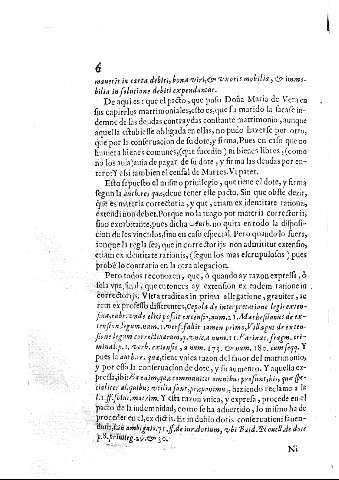 6
mauerit in carta debiti, bona viri, & vxoris mobilia, & immo-
bilia in solutione debiti expendantur.
De aqui es: que el pacto, que puso Doña Maria de Vera en
sus capitolos matrimoniales, esto es, que su marido la sacasse in-
demne de las deudas contraydas constante matrimonio, aunque
aquella estubiesse obligada en ellas, no pudo hazerse por otro,
que por la conseruacion de su dote, y firma, Pues en caso que no
huuiera bienes comunes, (que sucediò) ni bienes libres, (como
no los auia) auia de pagar de su dote, y firma las deudas por en-
tero: Y assi tambien el censal de Martes. Vt pater.
Esto supuesto el mismo priuilegio, que tiene el dote, y firma
segun la auth. res quæ, deue tener este pacto. Sin que obste dezir,
que es materia correctoria, y que, etiam ex identitate rationis,
extendi non debet. Porque no la traygo por materia correctoria,
sino exorbitante, pues dicha Auth. no quita en todo la disposi-
cion de los vinculos, sino en caso especial. Pero quando lo fuera,
aunque la regla sea, que in correctorijs non admititur extensio,
etiam ex identitate rationis, (segun los mas escrupulosos) pues
probè lo contrario en la otra alegacion.
Pero todos reconocen, que, ò quando ay razon expressa, ò
sola vna, final, que entonces ay extension ex eadem ratione in
correctorijs. Vltra traditos in prima allegatione, grauiter, ac
rem ex professo disserentes, Cepola de interpretatione legis exten-
siua, rubr. vnde elici possit extensi, num. 21. Mathesilanus de ex-
tension. legum, num. 1. vers. fallit tamen primo, Villaqut. de exten-
sione legum correctoriarum, q. vnica, num. 11. Farinac. fragm. cri-
minal. p. 1. verb. extensio, a num. 473. & num. 182. cum seqq. Y
pues la auth. res quæ, tiene vnica razon del fauor del matrimonio,
y por esso la conseruacion de dote, y su aumento. Y aquella ex-
pressa, ibi: Ea enim, quæ communiter omnibus prosunt, his, quæ spe-
cialiter aliquibus vtilia sunt, præponimus, haziendo reclamo a la
l. 1. ff. solut. matrim. Y esta razon vnica, y expressa, procede en el
pacto de la indemnidad, como se ha aduertido, lo mismo ha de
proceder en el, ex dictis. Et in dubio dotis conseruationi fauen-
dum,
p. 8. priuileg. 29. & 30.
Ni